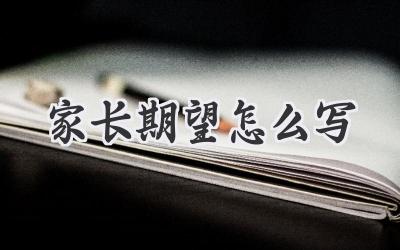 家长期望怎么写